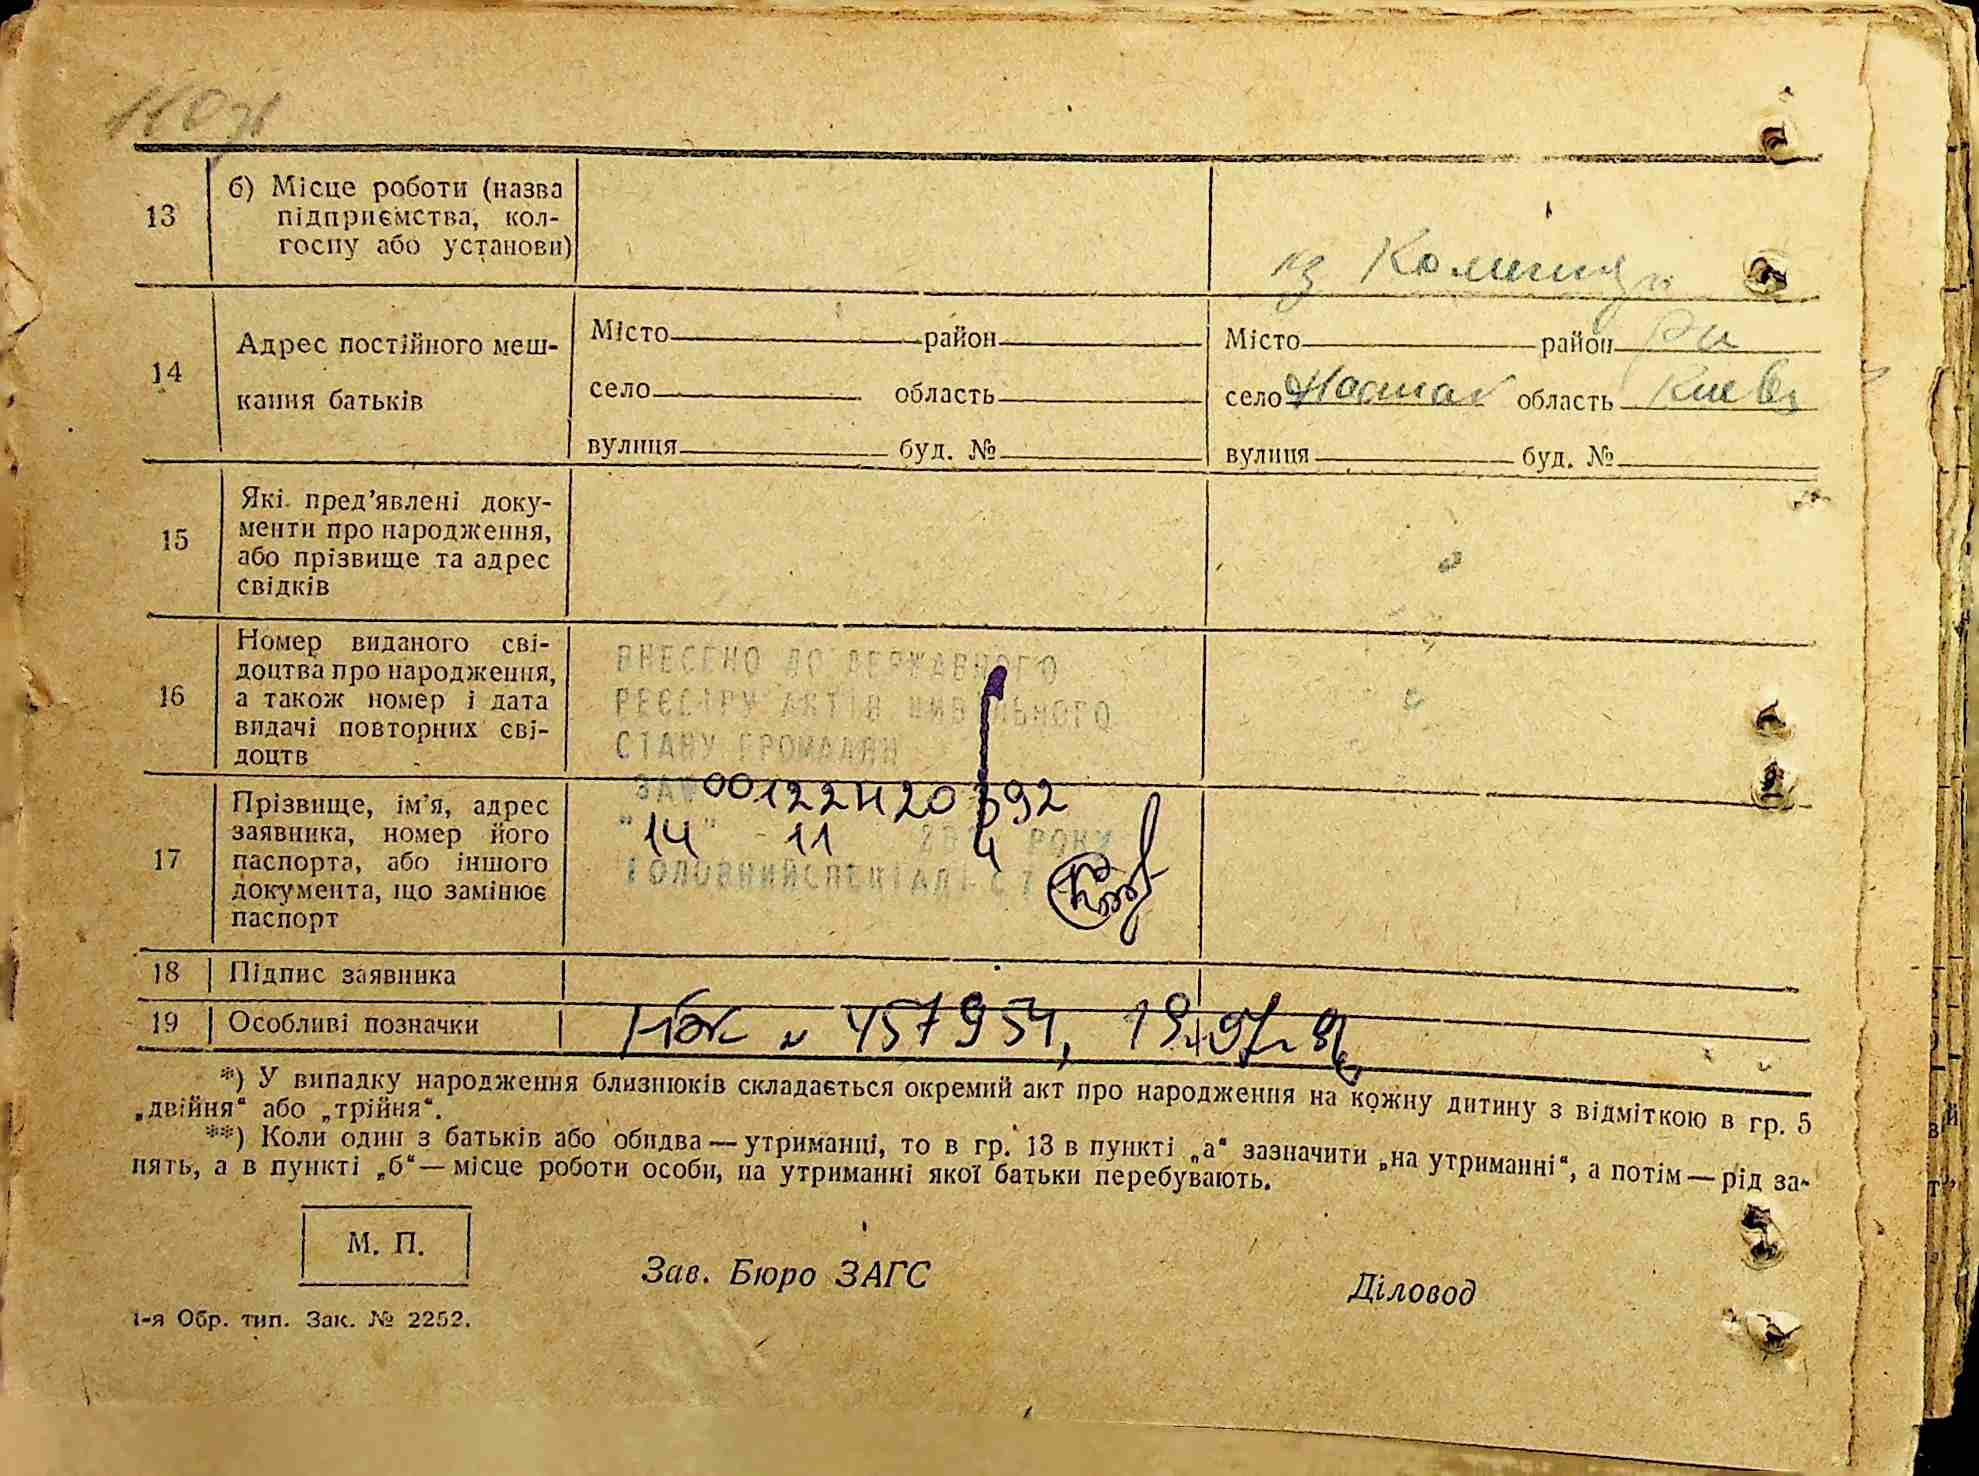 13 б) Місце роботи (назва
підприємства, кол-
госпу або установи)
кз
14 Адрес постійного меш-
кання батьків
Місто район
село область
вулиця буд. №
Місто район
село область Киевс
вулиця буд. №
15 Які пред’явлені доку-
менти про народження,
або прізвище та адрес
свідків
16 Номер виданого сві-
доцтва про народження,
а також номер і дата
видачі повторних сві-
доцтв
ВНЕСЕНО ДО ДЕРЖАВНОГО
РЕЄСТРУ АКТІВ ЦИВІЛЬНОГО
СТАНУ ГРОМАДЯН
ЗА № 00122420392
17 Прізвище, ім’я, адрес
заявника, номер його
паспорта, або іншого
документа, що замінює
паспорт
"14" 11 РОКУ
ГОЛОВНИЙ СПЕЦІАЛІСТ
18 Підпис заявника
19 Особливі позначки
№ 457954, 19.07.
*) У випадку народження близнюків складається окремий акт про народження на кожну дитину з відміткою в гр. 5
„двійня“ або „трійня“.
**) Коли один з батьків або обидва—утриманці, то в гр. 13 в пункті „а“ зазначити „на утриманні“, а потім—рід за-
нять, а в пункті „б“—місце роботи особи, на утриманні якої батьки перебувають.
М. П.
Зав. Бюро ЗАГС Діловод
1-я Обр. тип. Зак. № 2252.